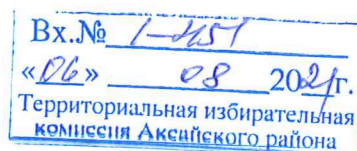 Вх.№ 1-451
«06» 08 2021г.
Территориальная избирательная
комиссия Аксайского района